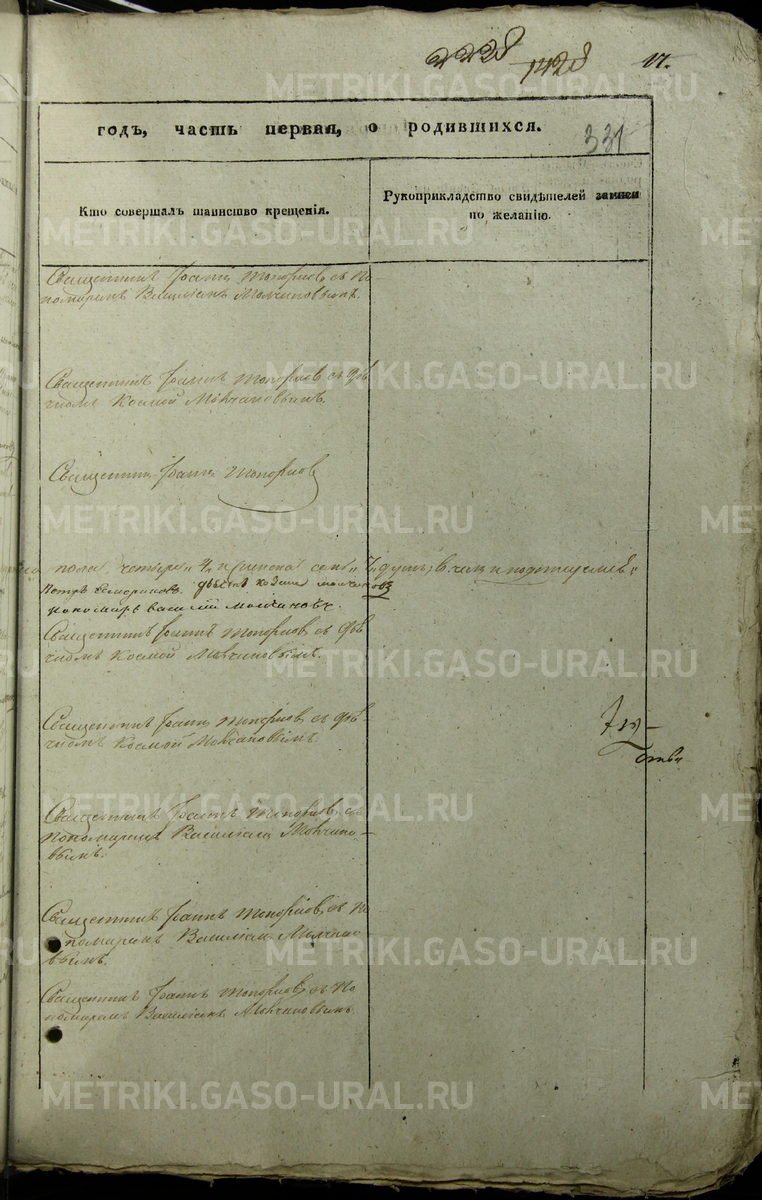 2228
1428
17.
METRIKI.GASO-URAL.RU
годъ, часть первая, о родившихся.
331
Кто совершалъ таинство крещенія.
Рукоприкладство свидѣтелей записи
по желанію.
Священникъ Іоаннъ Топорковъ съ По-
номаремъ Василіемъ Молчановымъ.
Священникъ Іоаннъ Топорковъ съ Дья
чкомъ Космой Молчановымъ.
Священникъ Іоаннъ Топорковъ
пола четыре 4, и женска семь 7, душъ;
дьячекъ Козма Молчановъ
пономарь Василій Молчановъ.
Священникъ Іоаннъ Топорковъ съ Дья
чкомъ Космой Молчановымъ.
Священникъ Іоаннъ Топорковъ съ Дья
чкомъ Космой Молчановымъ.
Священникъ Іоаннъ Топорковъ съ
Пономаремъ Василіемъ Молчано-
вымъ.
Священникъ Іоаннъ Топорковъ съ По
номаремъ Василіемъ Молчано
вымъ.
Священникъ Іоаннъ Топорковъ съ По
номаремъ Василіемъ Молчановымъ.